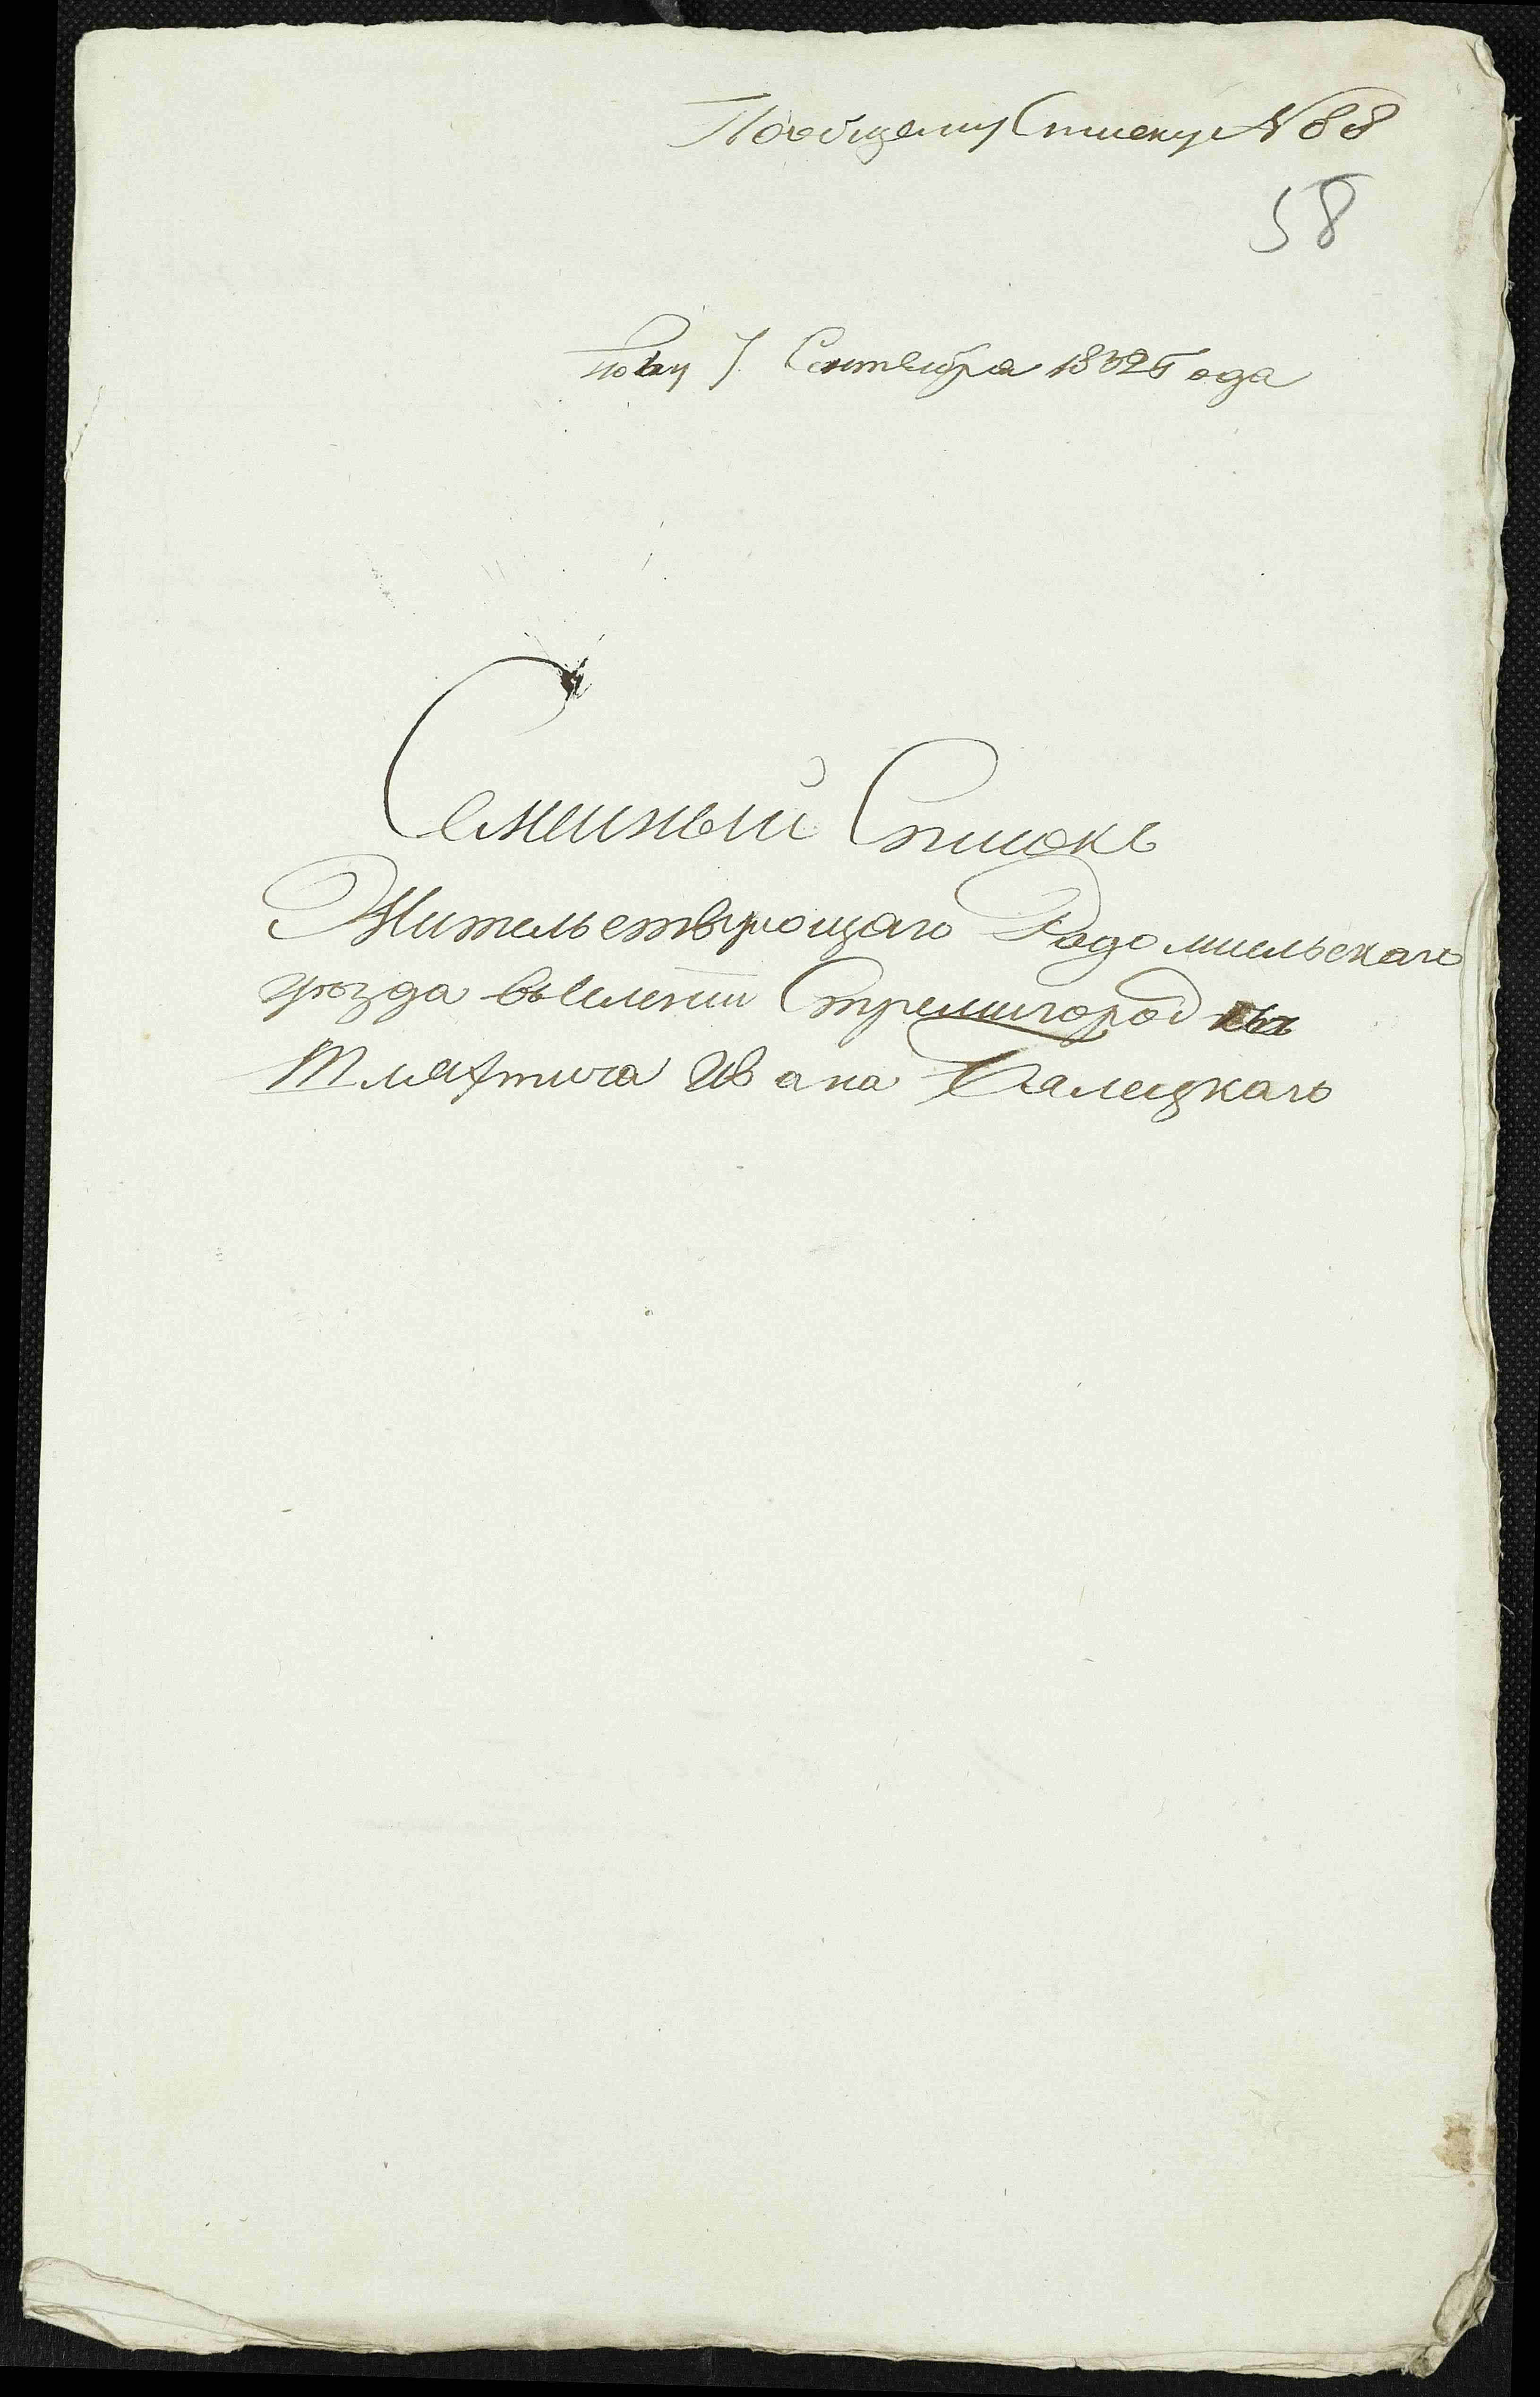 По общему Списку N 88
58
7 Сентября 1832 Года
Семейный Списокъ
Жительствующаго Радомысльскаго
уѣзда въ селении Стремигород
Шляхтича Ивана Галецкаго